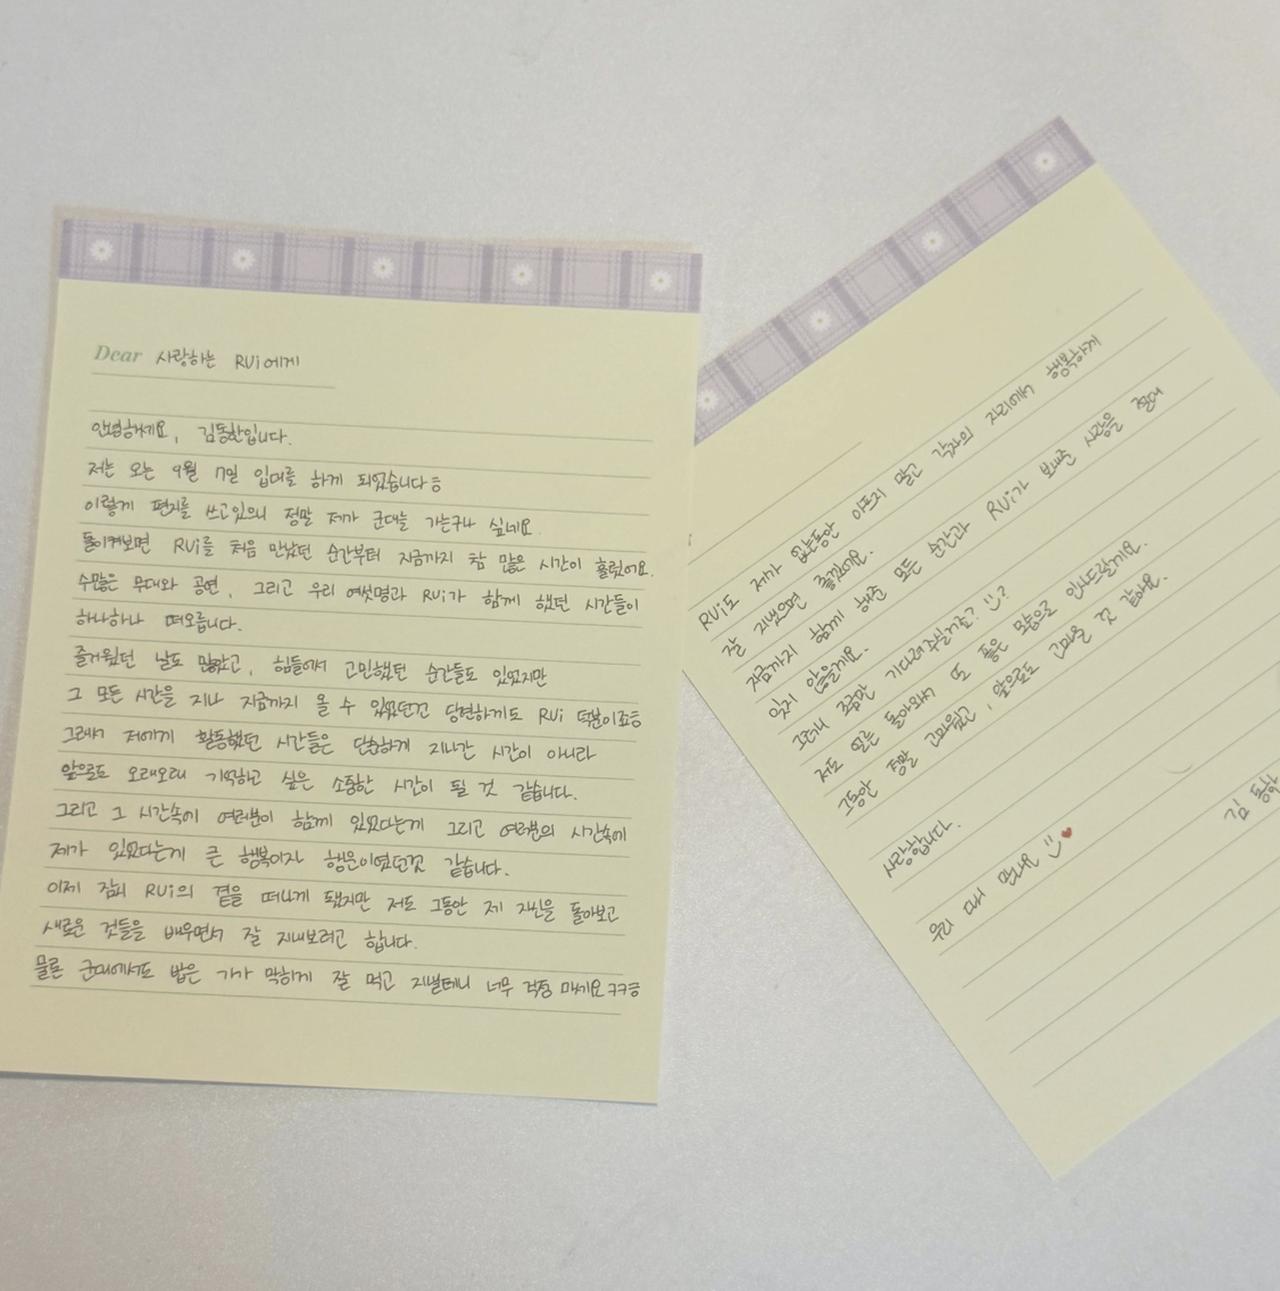 Dear 사랑하는 RUi에게
안녕하세요, 김동한입니다.
저는 오는 9월 7일 입대를 하게 되었습니다ㅎ
이렇게 편지를 쓰고있으니 정말 제가 군대를 가는구나 싶네요
돌이켜보면 RUi를 처음 만났던 순간부터 지금까지 참 많은 시간이 흘렀어요.
수많은 무대와 공연, 그리고 우리 여섯명과 RUi가 함께 했던 시간들이
하나하나 떠오릅니다.
즐거웠던 날도 많았고, 힘들어서 고민했던 순간들도 있었지만
그 모든 시간을 지나 지금까지 올 수 있었던건 당연하게도 RUi 덕분이죠ㅎ
그래서 저에게 활동했던 시간들은 단순하게 지나간 시간이 아니라
앞으로도 오래오래 기억하고 싶은 소중한 시간이 될 것 같습니다.
그리고 그 시간속에 여러분이 함께 있었다는게 그리고 여러분의 시간속에
제가 있었다는게 큰 행복이자 행운이였던것 같습니다.
이제 잠시 RUi의 곁을 떠나게 됐지만 저도 그동안 제 자신을 돌아보고
새로운 것들을 배우면서 잘 지내보려고 합니다.
물론 군대에서도 밥은 기가 막히게 잘 먹고 지낼테니 너무 걱정 마세요ㅋㅋㅎ
RUi도 제가 없는동안 아프지 말고 각자의 자리에서 행복하게
잘 지냈으면 좋겠어요.
지금까지 함께 해준 모든 순간과 RUi가 보내준 사랑을 절대
잊지 않을게요.
그러니 조금만 기다려주실거죠? :)?
저도 얼른 돌아와서 또 좋은 모습으로 인사드릴게요.
그동안 정말 고마웠고, 앞으로도 고마울 것 같아요.
사랑합니다.
우리 또 만나요 :)♥
김 동한